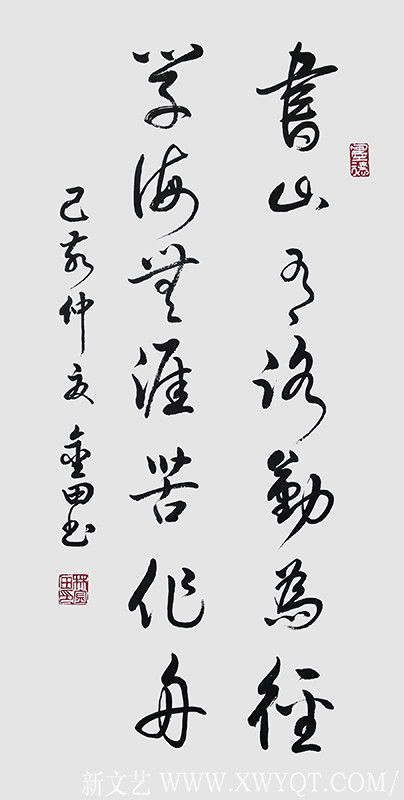 書山有路勤為徑
學海無涯苦作舟
己亥仲夏 金田书
新文艺 WWW.XWYQT.COM/